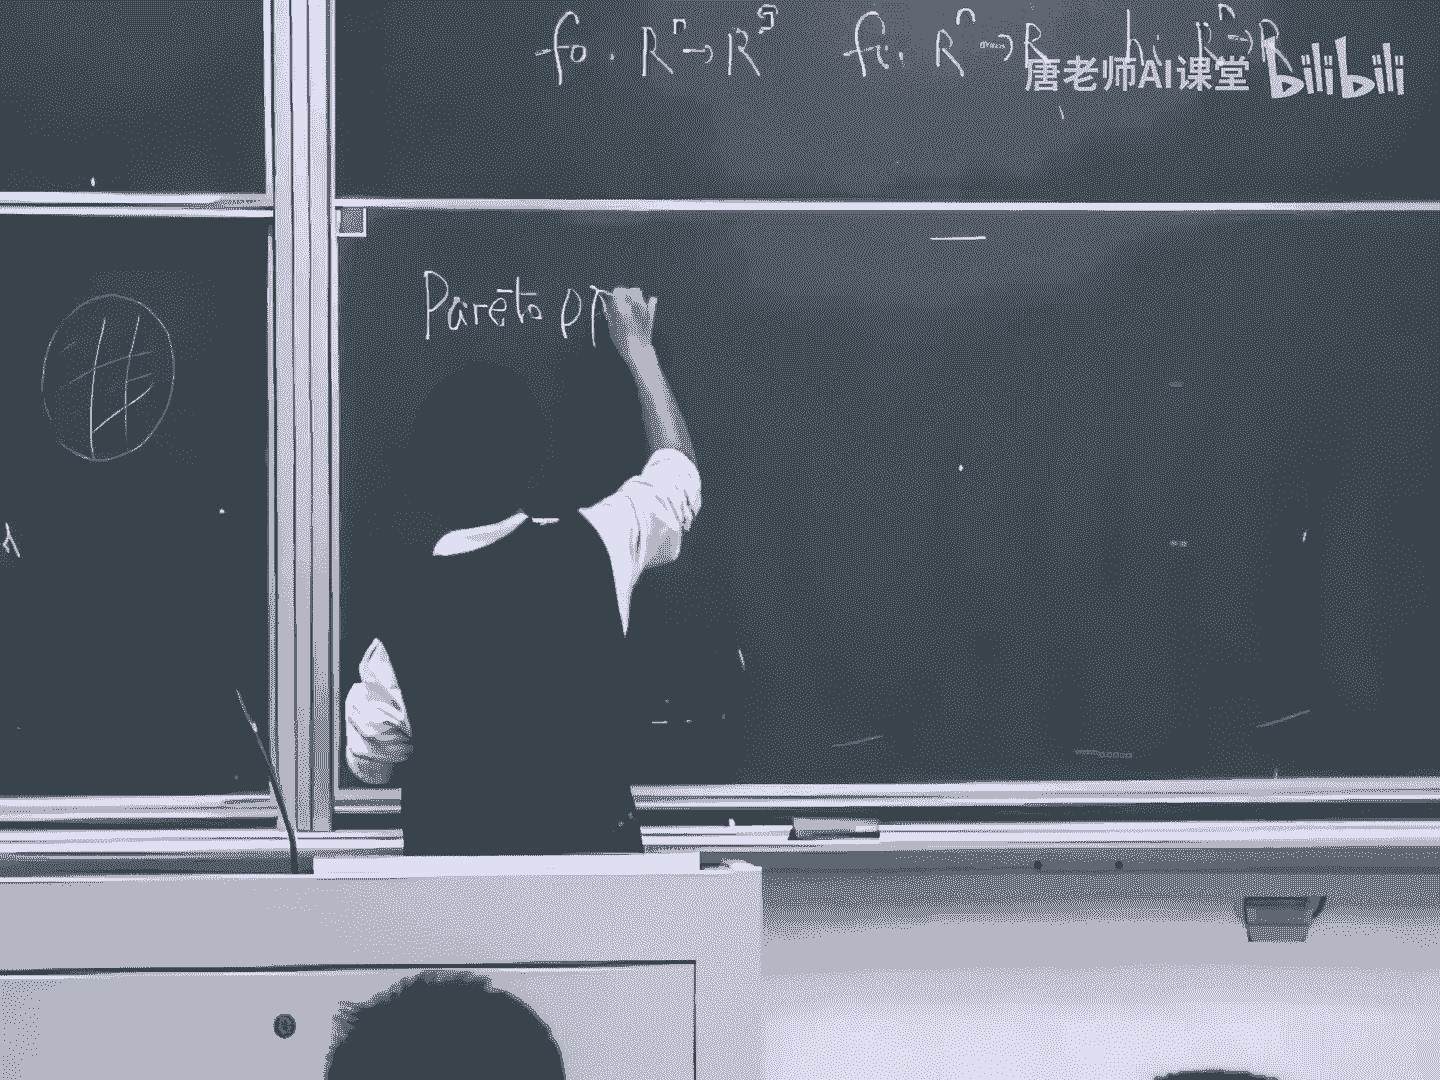 f₀: Rⁿ→R^q fᵢ: Rⁿ→R hᵢ: Rⁿ→R
唐老师AI课堂 bilibili
Pareto op